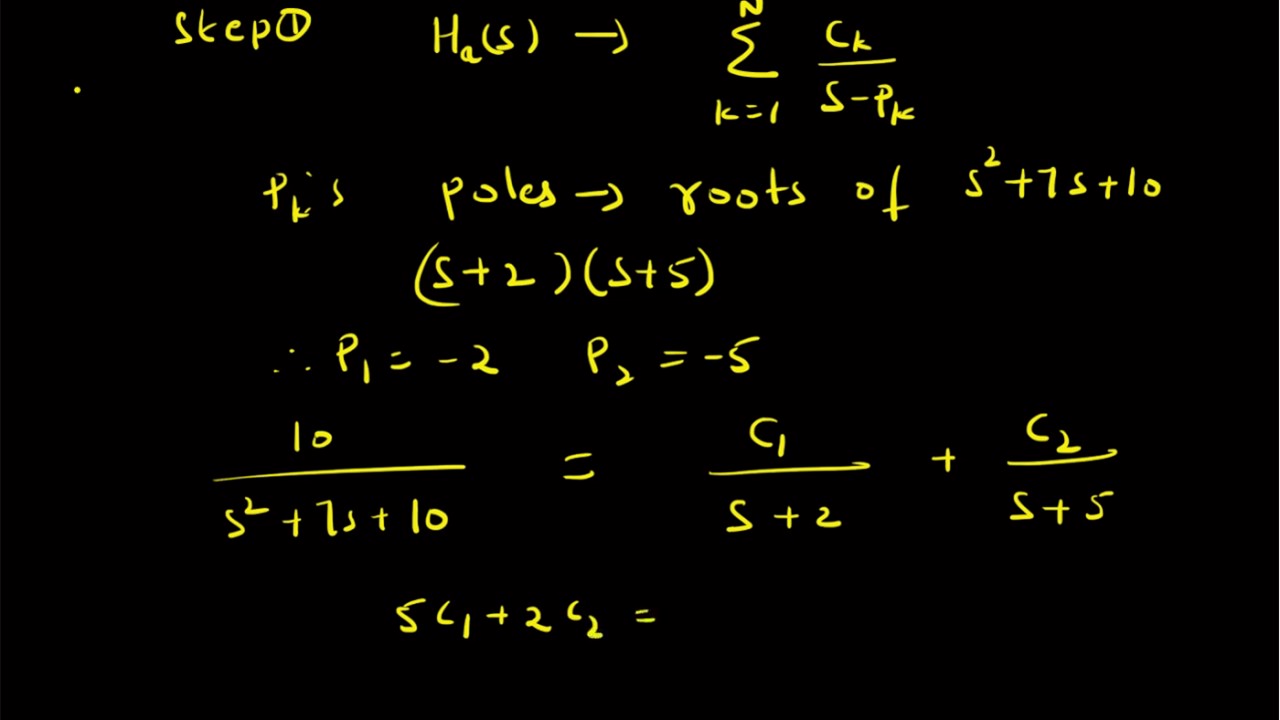 Step ① Hₐ(s) → N Σ k=1 Cₖ / s-Pₖ
Pₖ's poles → roots of s²+7s+10
(s+2)(s+5)
∴ P₁ = -2 P₂ = -5
10 / s²+7s+10 = C₁ / s+2 + C₂ / s+5
5C₁+2C₂ =